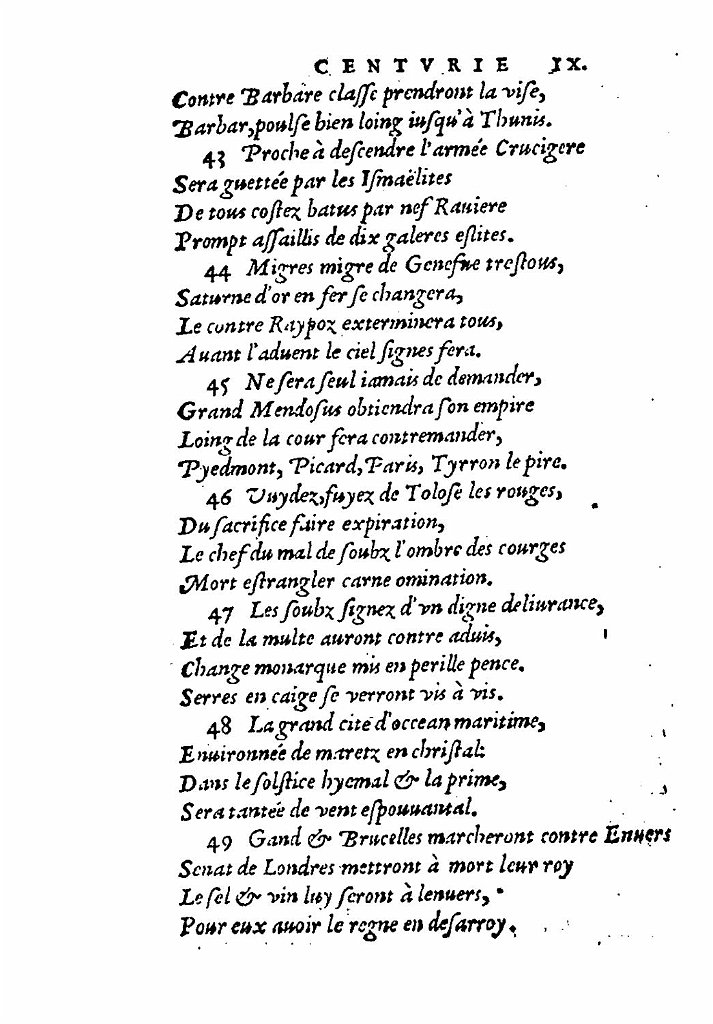 CENTVRIE IX.
Contre Barbare claſſe prendront la viſe,
Barbar, poulſe bien loing iuſqu'à Thunis.
43 Proche à deſcendre l'armée Crucigere
Sera guettée par les Iſmaëlites
De tous coſtez batus par nef Rauiere
Prompt aſſaillis de dix galeres eſlites.
44 Migres migre de Geneſue treſtous,
Saturne d'or en fer ſe changera,
Le contre Raypoz exterminera tous,
Auant l'aduent le ciel ſignes fera.
45 Ne ſera ſeul iamais de demander,
Grand Mendoſus obtiendra ſon empire
Loing de la cour fera contremander,
Pyedmont, Picard, Paris, Tyrron le pire.
46 Vuydez, fuyez de Toloſe les rouges,
Du ſacrifice faire expiration,
Le chef du mal de ſoubz l'ombre des courges
Mort eſtrangler carne omination.
47 Les ſoubz ſignez d'vn digne deliurance,
Et de la multe auront contre aduis,
Change monarque mis en perille pence.
Serres en caige ſe verront vis à vis.
48 La grand cité d'occean maritime,
Enuironnée de maretz en chriſtal:
Dans le ſolſtice hyemal & la prime,
Sera tantée de vent eſpouuantal.
49 Gand & Brucelles marcheront contre Enuers
Senat de Londres mettront à mort leur roy
Le ſel & vin luy ſeront à lenuers,
Pour eux auoir le regne en deſarroy.